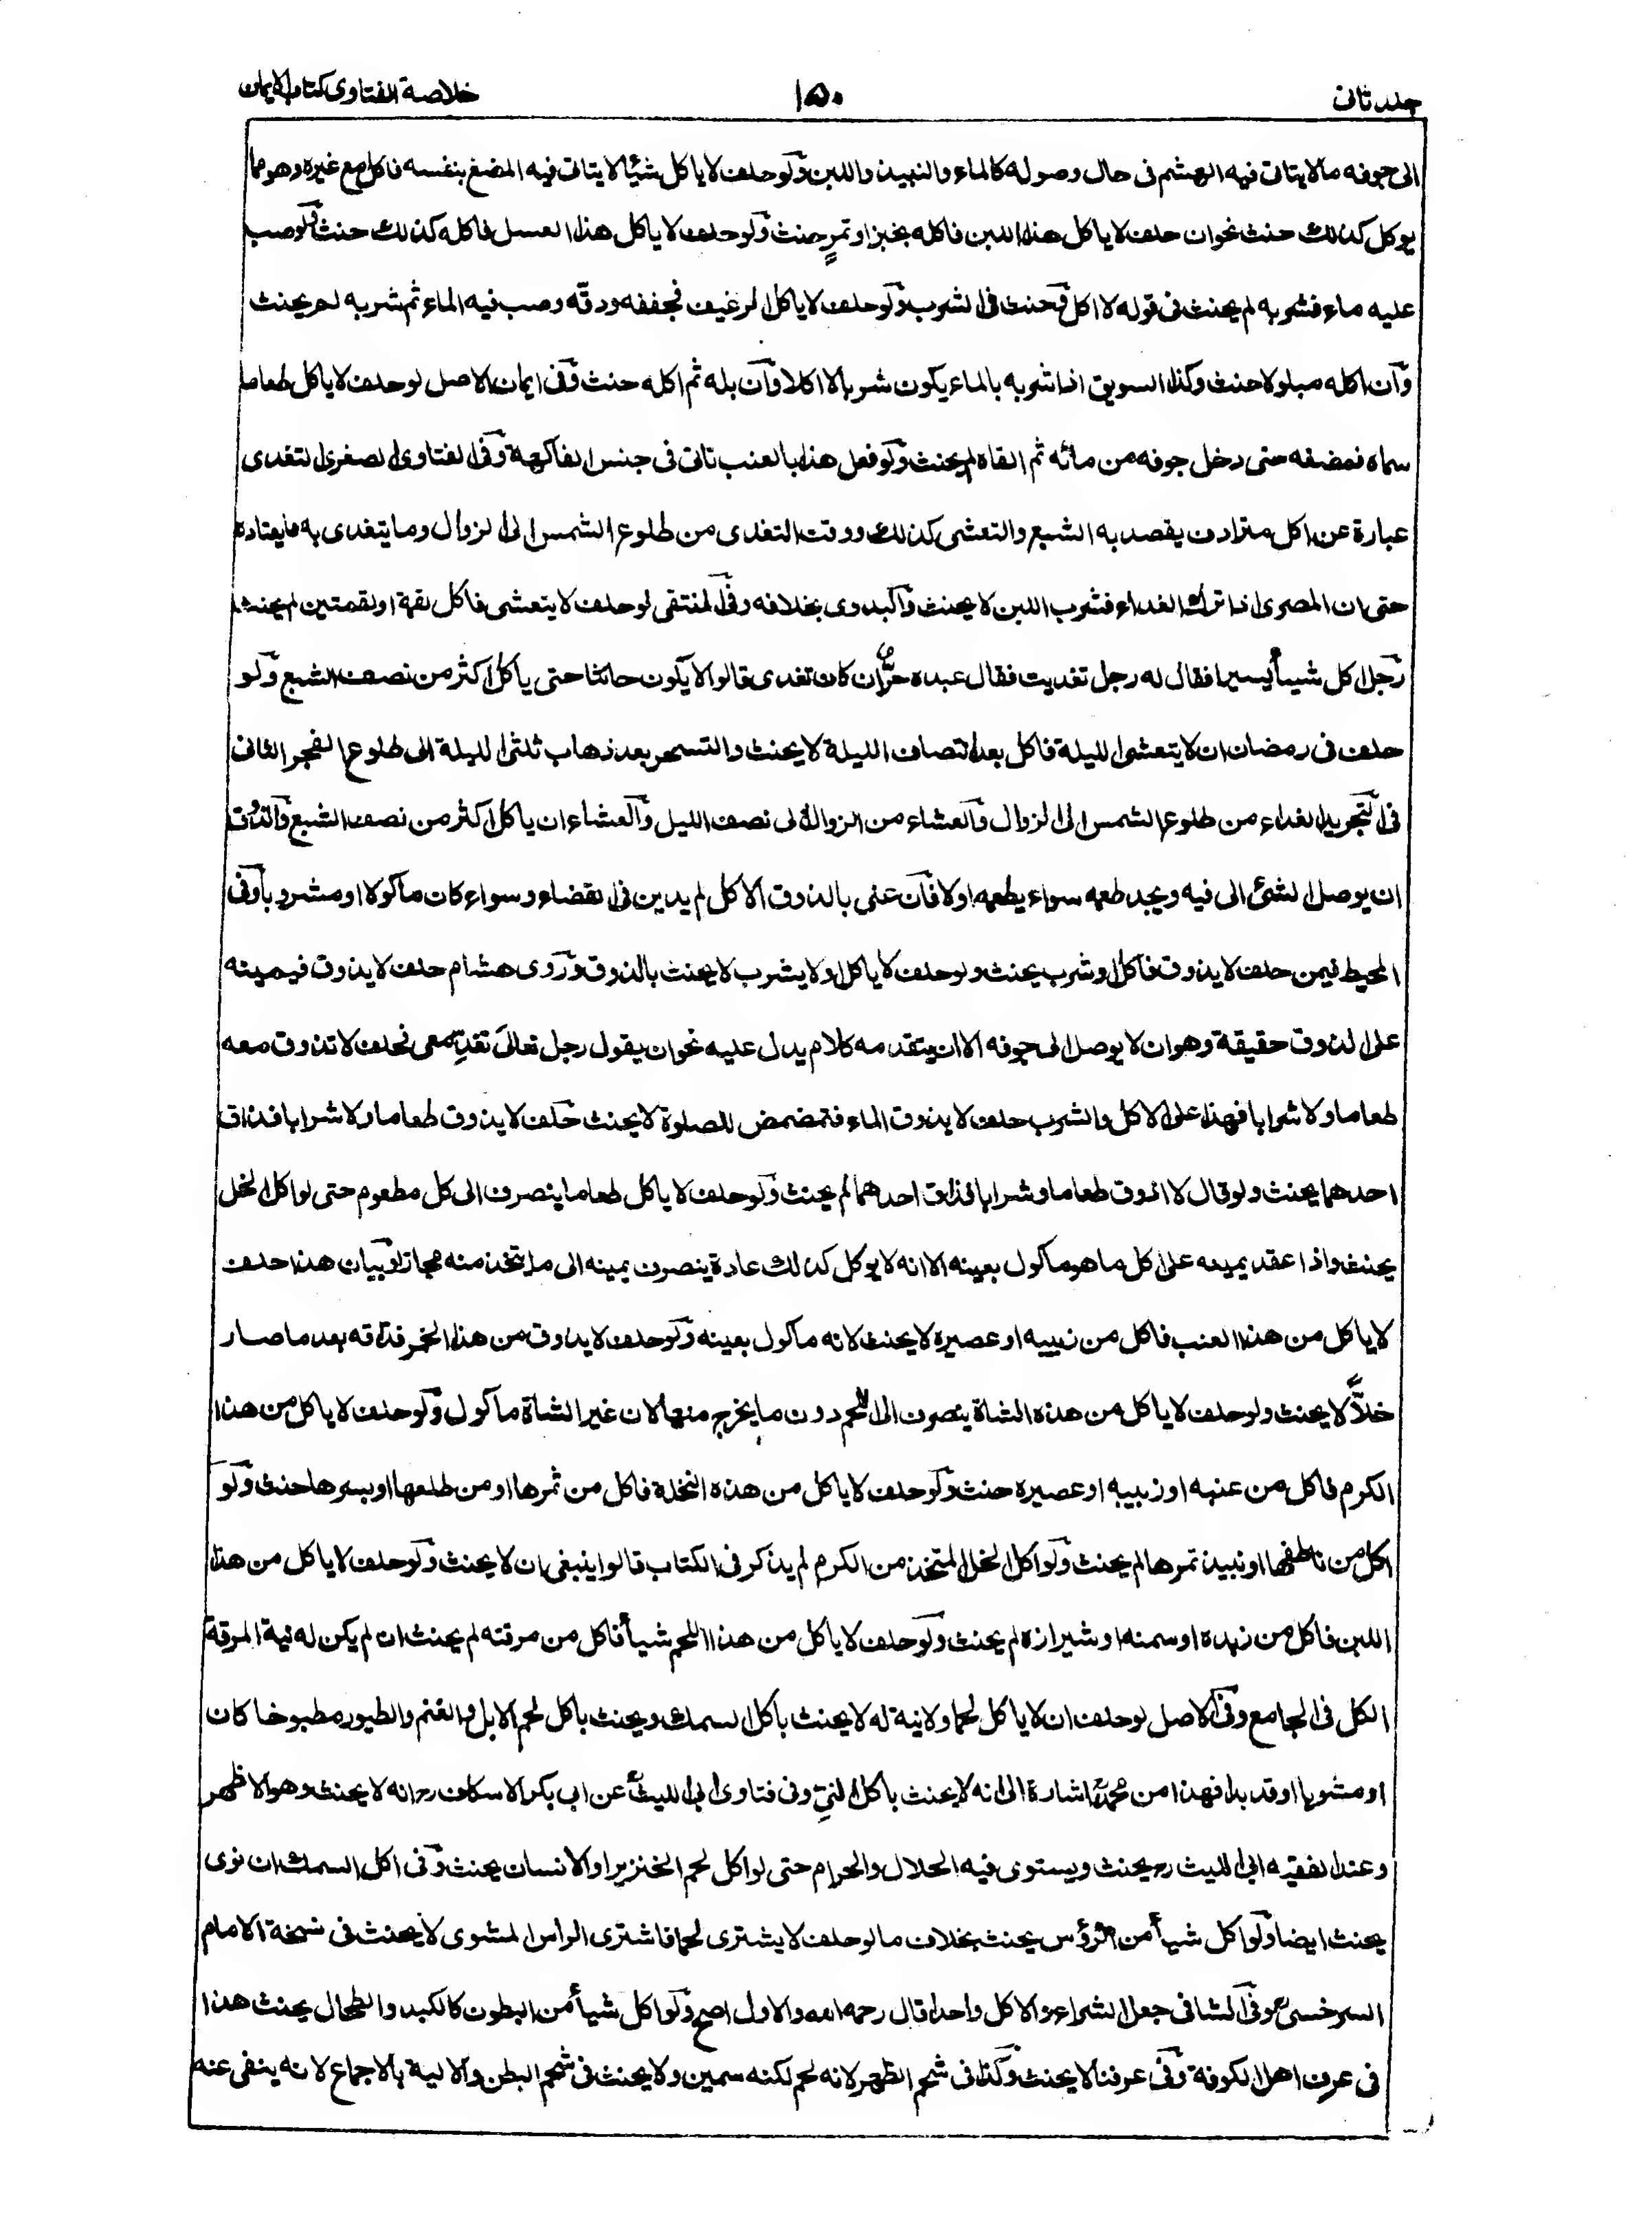 جلد ثانى ١٥٠ خلاصة الفتاوى كتاب الايمان
الى جوفه مالا يتاتى فيه الهشم فى حال وصوله كالماء والنبيذ واللبن ولو حلف لا ياكل شيئا لا يتاتى فيه المضغ بنفسه فاكل مع غيره وهو مما
يوكل كذلك حنث نحو ان حلف لا ياكل هذا اللبن فاكله بخبز او تمر حنث ولو حلف لا ياكل هذا العسل فاكله كذلك حنث ولو صب
عليه ماء فشربه لم يحنث فى قوله لا اكل وحنث فى الشرب ولو حلف لا ياكل الرغيف فجففه ودقه وصب فيه الماء ثم شربه لم يحنث
وان اكله مبلولا حنث وكذا السويق اذا شربه بالماء يكون شربا لا اكلا وان بله ثم اكله حنث وفى ايمان الاصل لو حلف لا ياكل طعاما
سماه فمضغه حتى دخل جوفه من مائه ثم القاه لم يحنث ولو فعل هذا بالعنب تاتى فى جنس الفاكهة وفى الفتاوى الصغرى التغدى
عبارة عن اكل مترادف يقصد به الشبع والتعشى كذلك ووقت التغدى من طلوع الشمس الى الزوال وما يتغدى به ما يعتاده
حتى ان المصرى اذا ترك الغداء فشرب اللبن لا يحنث والبدوى بخلافه وفى المنتقى لو حلف لا يتعشى فاكل لقمة او لقمتين لم يحنث
رجل اكل شيأ يسيرا فقال له رجل تغديت فقال عبده حر ان كان تغدى قالوا لا يكون حانثا حتى ياكل اكثر من نصف الشبع ولو
حلف فى رمضان ان لا يتعشى الليلة فاكل بعد انتصاف الليلة لا يحنث والتسحر بعد ذهاب ثلثى الليلة الى طلوع الفجر الثانى
فى التجريد الغداء من طلوع الشمس الى الزوال والعشاء من الزوال الى نصف الليل والعشاء ان ياكل اكثر من نصف الشبع والذوق
ان يوصل الشئ الى فيه ويجد طعمه سواء يطعمه اولا فان عنى بالذوق الاكل لم يدين فى القضاء وسواء كان ماكولا او مشروبا وفى
المحيط فيمن حلف لا يذوق فاكل وشرب يحنث ولو حلف لا ياكل ولا يشرب لا يحنث بالذوق وروى هشام حلف لا يذوق فيمينه
على الذوق حقيقة وهو ان لا يوصل الى جوفه الا ان يتقدمه كلام يدل عليه نحو ان يقول رجل تعال تغد معى فحلف لا تذوق معه
طعاما ولا شرابا فهذا على الاكل والشرب حلف لا يذوق الماء فتمضمض للصلوة لا يحنث حلف لا يذوق طعاما ولا شرابا فذاق
احدهما يحنث ولو قال لا اذوق طعاما وشرابا فذاق احدهما لم يحنث ولو حلف لا ياكل طعاما ينصرف الى كل مطعوم حتى لو اكل الخل
يحنث واذا عقد يمينه على اكل ما هو ماكول بعينه الا انه لا يوكل كذلك عادة ينصرف يمينه الى ما يتخذ منه مجازا وبيان هذا حلف
لا ياكل من هذا العنب فاكل من زبيبه او عصيره لا يحنث لانه ماكول بعينه ولو حلف لا يذوق من هذا الخمر فذاقه بعد ما صار
خلا لا يحنث ولو حلف لا ياكل من هذه الشاة ينصرف الى اللحم دون ما يخرج منها لان غير الشاة ماكول ولو حلف لا ياكل من هذا
الكرم فاكل من عنبه او زبيبه او عصيره حنث ولو حلف لا ياكل من هذه النخلة فاكل من ثمرها او من طلعها او بسرها حنث ولو
اكل من ناطفها او نبيذ تمرها لم يحنث ولو اكل الخل المتخذ من الكرم لم يذكر فى الكتاب قالوا ينبغى ان لا يحنث ولو حلف لا ياكل من هذا
اللبن فاكل من زبده او سمنه او شيرازه لم يحنث ولو حلف لا ياكل من هذا اللحم شيأ فاكل من مرقته لم يحنث ان لم يكن له نية المرقة
الكل فى الجامع وفى الاصل لو حلف ان لا ياكل لحما ولا نية له لا يحنث باكل السمك ويحنث باكل لحم الابل والغنم والطيور مطبوخا كان
او مشويا او قديدا فهذا من محمد اشارة الى انه لا يحنث باكل النئ وفى فتاوى ابى الليث عن ابى بكر الاسكاف رح انه لا يحنث وهو الاظهر
وعند الفقيه ابى الليث رح يحنث ويستوى فيه الحلال والحرام حتى لو اكل لحم الخنزير او الانسان يحنث وفى اكل السمك ان نوى
يحنث ايضا ولو اكل شيأ من الرؤس يحنث بخلاف ما لو حلف لا يشترى لحما فاشترى الراس المشوى لا يحنث فى نسخة الامام
السرخسى وفى الشافى جعل الشراء والاكل واحدا قال رحمه الله والاول اصح ولو اكل شيأ من البطون كالكبد والطحال يحنث هذا
فى عرف اهل الكوفة وفى عرفنا لا يحنث وكذا فى شحم الظهر لانه لحم لكنه سمين ولا يحنث فى شحم البطن والالية بالاجماع لانه ينفى عنه